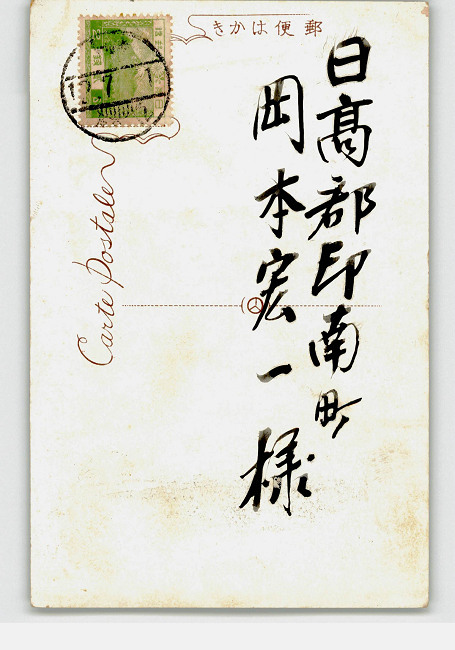 郵便はかき
日高郡印南町
岡本宏一様
Carte Postale